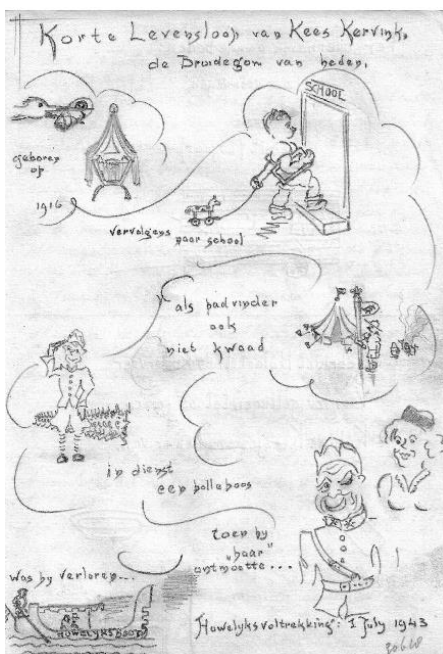 Korte Levensloop van Kees Kervink,
de Bruidegom van heden.
SCHOOL
geboren
op
1916
vervolgens
naar school
als padvinder
ook
niet kwaad
in dienst
een bolleboos
toen hy
"haar"
ontmoette...
Was hy verloren...
Huwelyksboot
"Huwelyksvoltrekking": 1 July 1943